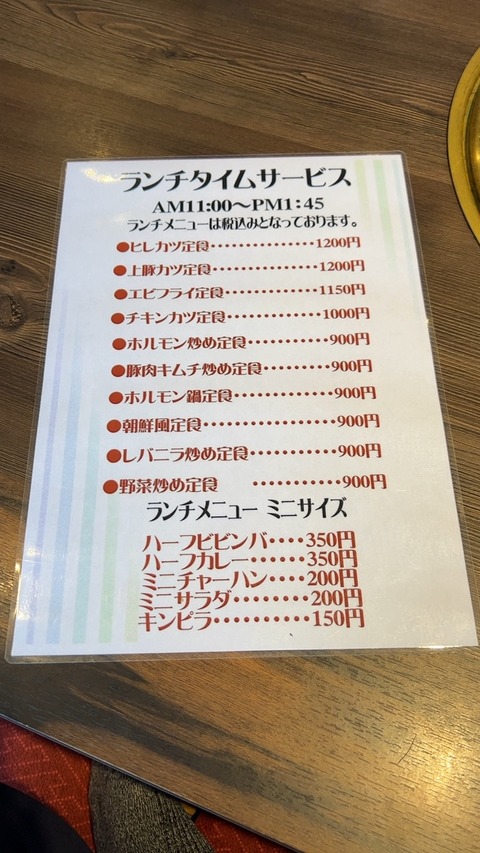 ランチタイムサービス
AM11:00～PM1:45
ランチメニューは税込みとなっております。
●ヒレカツ定食・・・・・・・・・・・・・・・1200円
●上豚カツ定食・・・・・・・・・・・・・・・1200円
●エビフライ定食・・・・・・・・・・・・・1150円
●チキンカツ定食・・・・・・・・・・・・・1000円
●ホルモン炒め定食・・・・・・・・・・・900円
●豚肉キムチ炒め定食・・・・・・・・・900円
●ホルモン鍋定食・・・・・・・・・・・・・900円
●朝鮮風定食・・・・・・・・・・・・・・・・・900円
●レバニラ炒め定食・・・・・・・・・・・900円
●野菜炒め定食　・・・・・・・・・・・900円
ランチメニュー ミニサイズ
ハーフビビンバ・・・・350円
ハーフカレー・・・・・・350円
ミニチャーハン・・・・200円
ミニサラダ・・・・・・・・200円
キンピラ・・・・・・・・・・150円